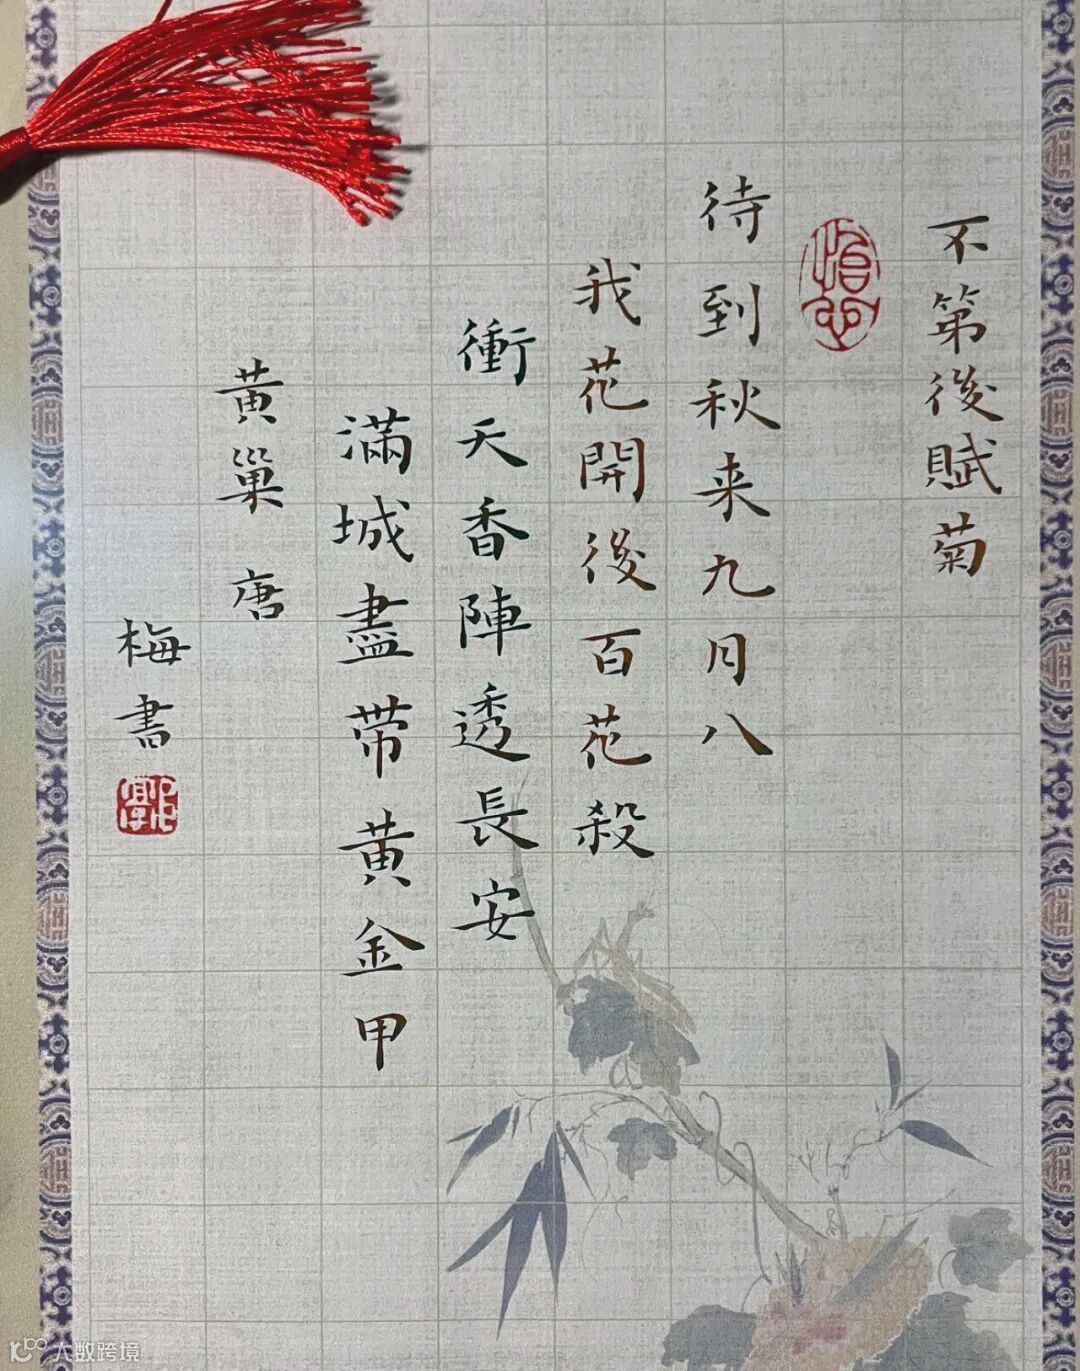 不第後賦菊
待到秋来九月八
我花開後百花殺
衝天香陣透長安
滿城盡带黄金甲
黄巢 唐
梅書
人数跨境